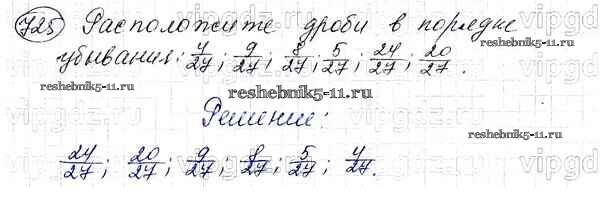 725 Расположите дроби в порядке
убывания: 4/27; 9/27; 8/27; 5/27; 24/27; 20/27.
reshebnik5-11.ru
reshebnik5-11.ru
Решение:
reshebnik5-11.ru
24/27; 20/27; 9/27; 8/27; 5/27; 4/27.